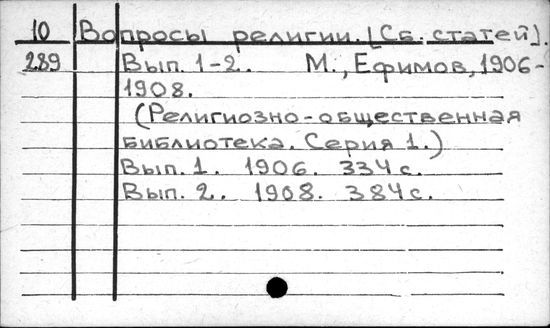 10 Вопросы религии. [Сб. статей].
289 Вып. 1-2. М., Ефимов, 1906-
1908.
(Религиозно-общественная
библиотека. Серия 1.)
Вып. 1. 1906. 334 с.
Вып. 2. 1908. 384 с.